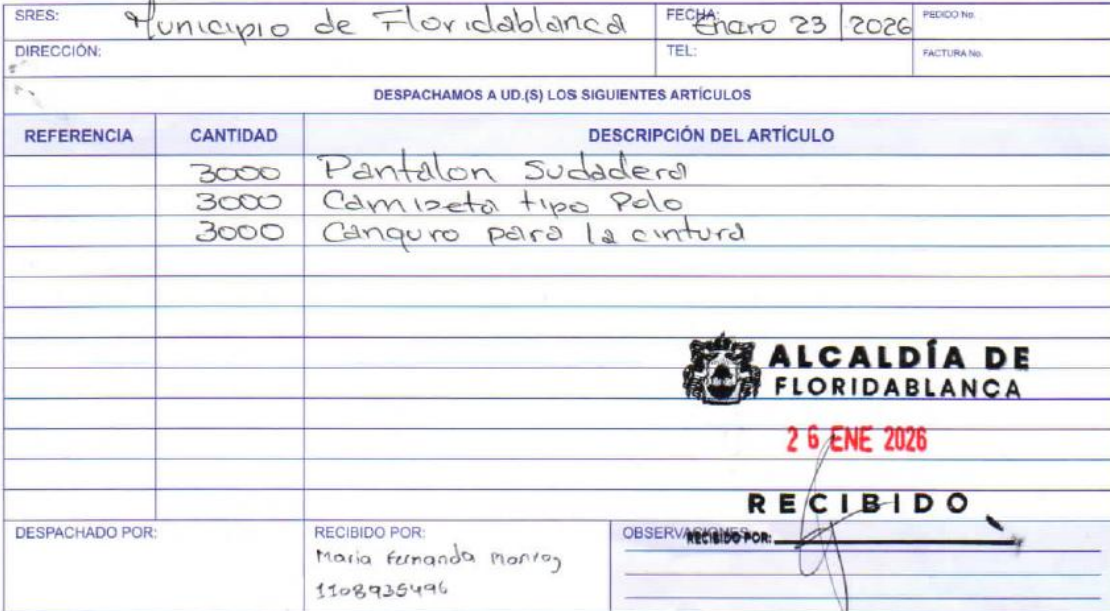 SRES: Municipio de Floridablanca FECHA: Enero 23 2026 PEDIDO No.
DIRECCIÓN: TEL: FACTURA No.
DESPACHAMOS A UD.(S) LOS SIGUIENTES ARTÍCULOS
REFERENCIA CANTIDAD DESCRIPCIÓN DEL ARTÍCULO
3000 Pantalon Sudadera
3000 Camiseta tipo Polo
3000 Canguro para la cintura
ALCALDÍA DE
FLORIDABLANCA
26 ENE 2026
RECIBIDO
DESPACHADO POR: RECIBIDO POR: OBSERVACIONES: RECIBIDO POR:
Maria Fernanda
1108935496